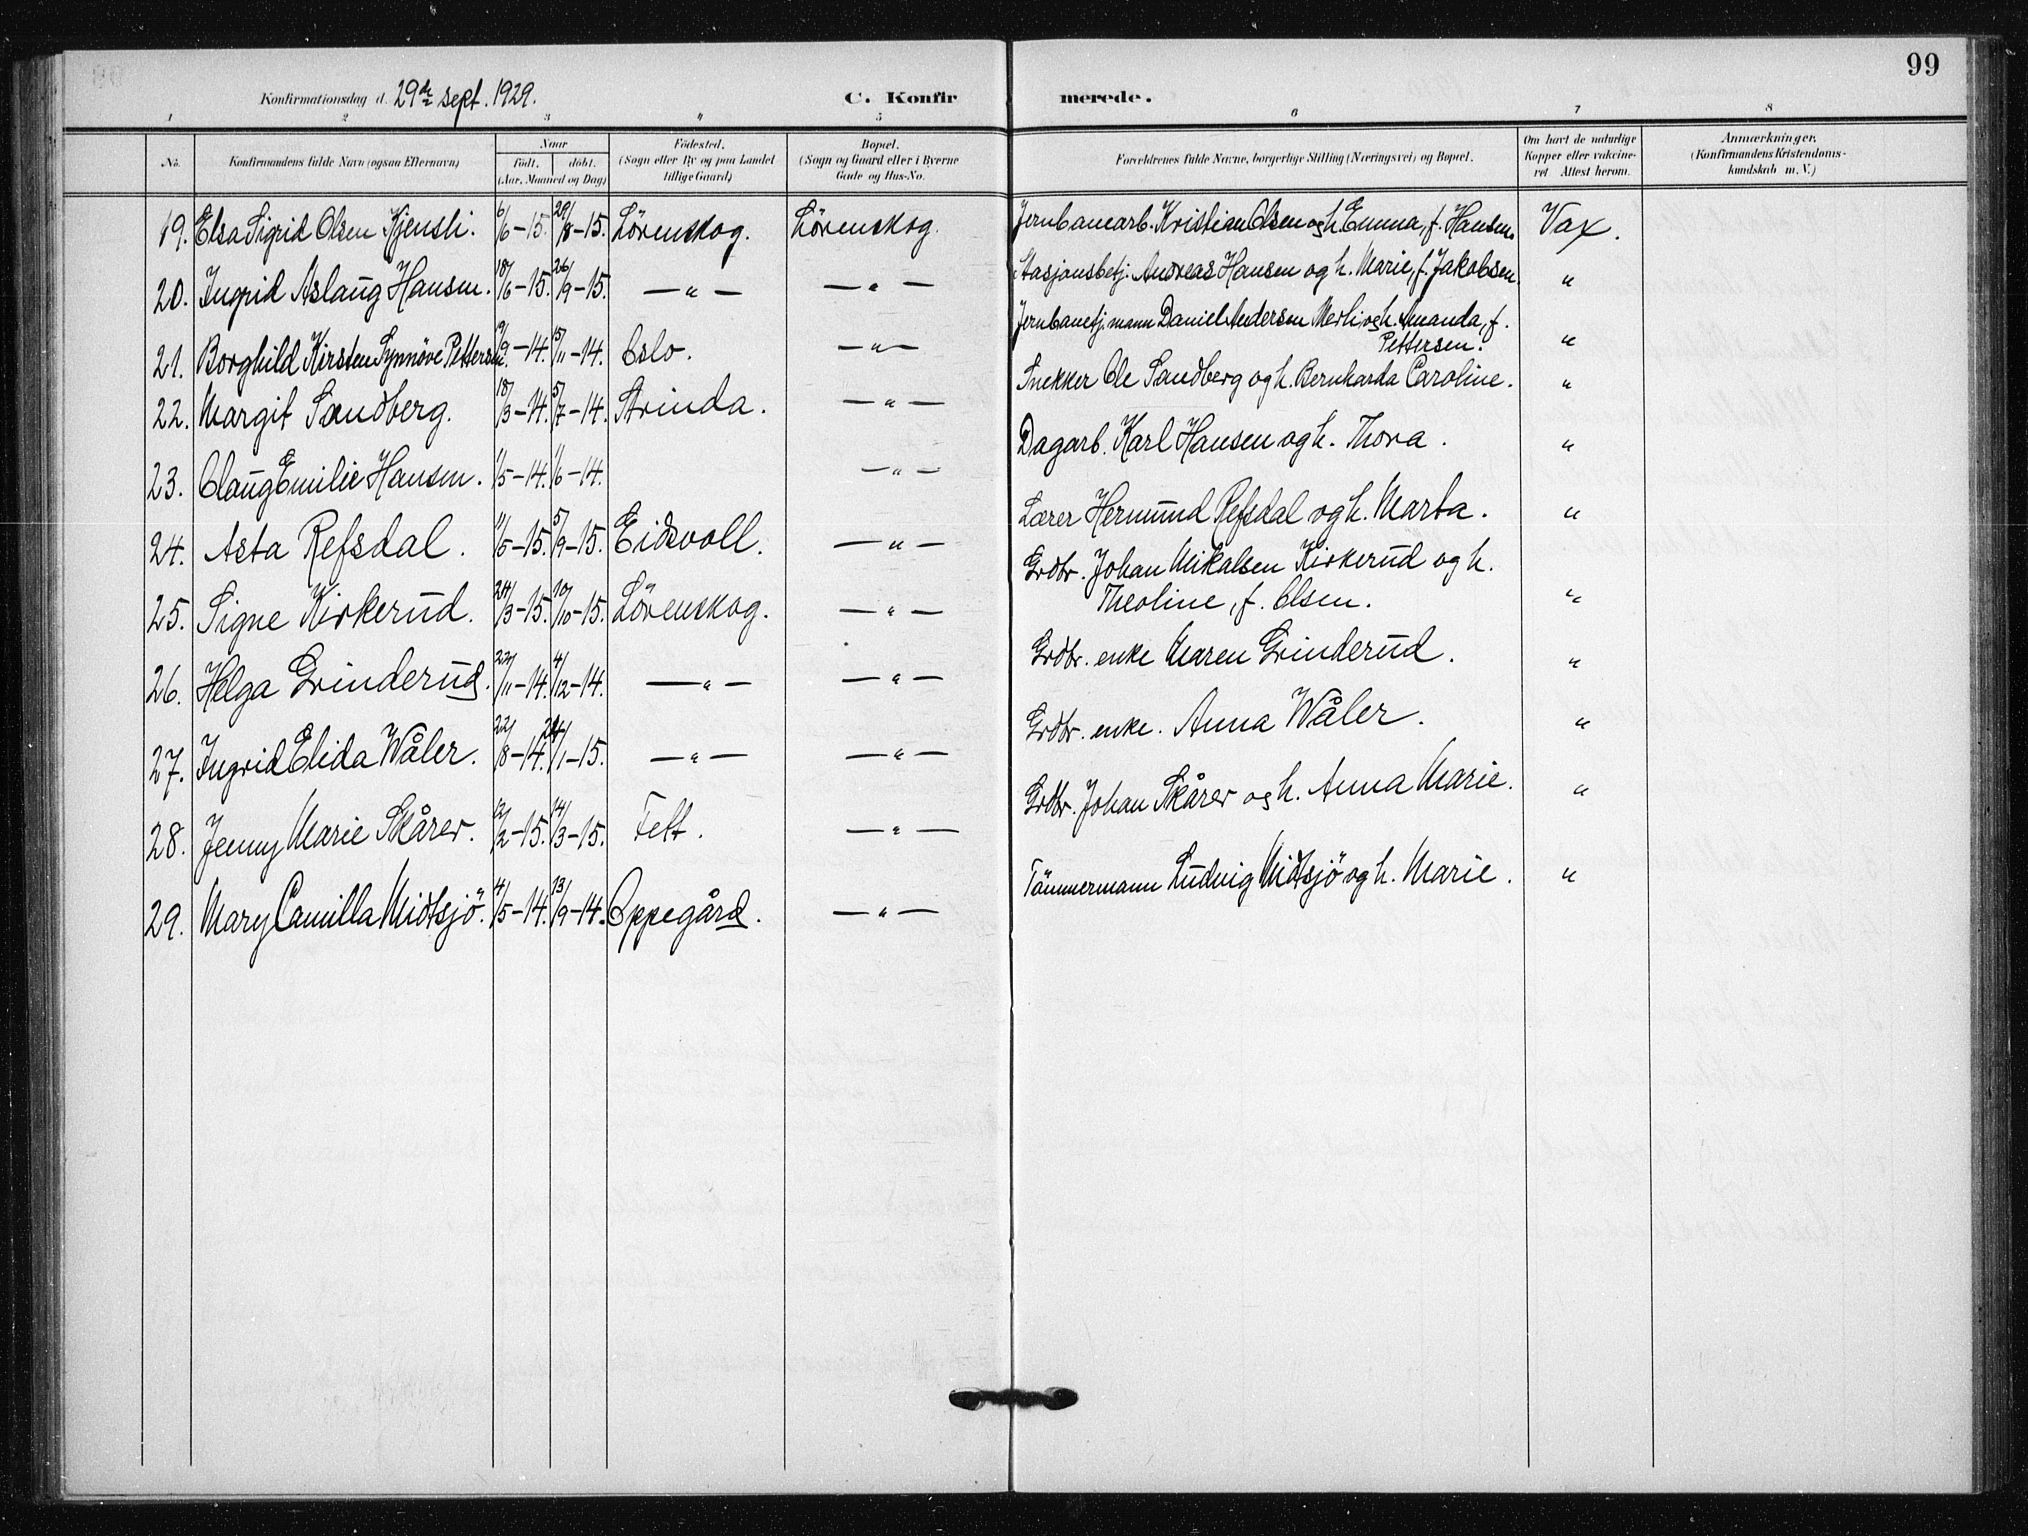 99
Konfirmationsdag d. 29de sept. 1929.
C. Konfirmerede.
1 2 3 4 5 6 7 8
No.
Konfirmandens fulde Navn (ogsaa Efternavn)
Naar
født. døbt.
(Aar, Maaned og Dag)
Fødested.
(Sogn eller By og paa Landet
tillige Gaard)
Bopæl.
(Sogn og Gaard eller i Byerne
Gade og Hus-No.
Forældrenes fulde Navne, borgerlige Stilling (Næringsvei) og Bopæl.
Om havt de naturlige
Kopper eller vakcine-
ret. Attest herom.
Anmærkninger.
(Konfirmandens Kristendoms-
kundskab m. V.)
19. Elsa Sigrid Olsen Kjensli. 6/6-15. 29/8-15. Lörenskog. Lörenskog. Jernbanearb. Kristian Olsen og h. Emma, f. Hansen. Vax.
20. Ingrid Aslaug Hansen. 18/6-15. 26/9-15. —„— —„— Stasjonsbetj. Andreas Hansen og h. Marie, f. Jakobsen. „
21. Borghild Kirsten Synnöve Pettersen. 9/9-14. 5/11-14. Oslo. —„— Jernbanetj.mann Daniel Andersen Merli og h. Amanda, f.
Pettersen. „
22. Margit Sandberg. 18/3-14. 5/7-14. Strinda. —„— Snekker Ole Sandberg og h. Bernharda Caroline. „
23. Olaug Emilie Hansen. 1/5-14. 1/6-14. —„— Dagarb. Karl Hansen og h. Thora. „
24. Asta Refsdal. 11/5-15. 5/9-15. Eidsvoll. —„— Lærer Hermund Refsdal og h. Marta. „
25. Signe Kirkerud. 24/3-15. 10/10-15. Lörenskog. —„— Grdbr. Johan Mikalsen Kirkerud og h.
Theoline, f. Olsen. „
26. Helga Grinderud. 22/11-14. 4/12-14. —„— —„— Grdbr. enke Maren Grinderud. „
27. Ingrid Elida Wåler. 22/8-14. 24/1-15. —„— —„— Grdbr. enke. Anna Wåler. „
28. Jenny Marie Skårer. 12/2-15. 14/3-15. Fett. —„— Grdbr. Johan Skårer og h. Anna Marie. „
29. Mary Camilla Midtsjö. 4/5-14. 13/9-14. Oppegård. —„— Tömmermann Ludvig Midtsjö og h. Marie. „